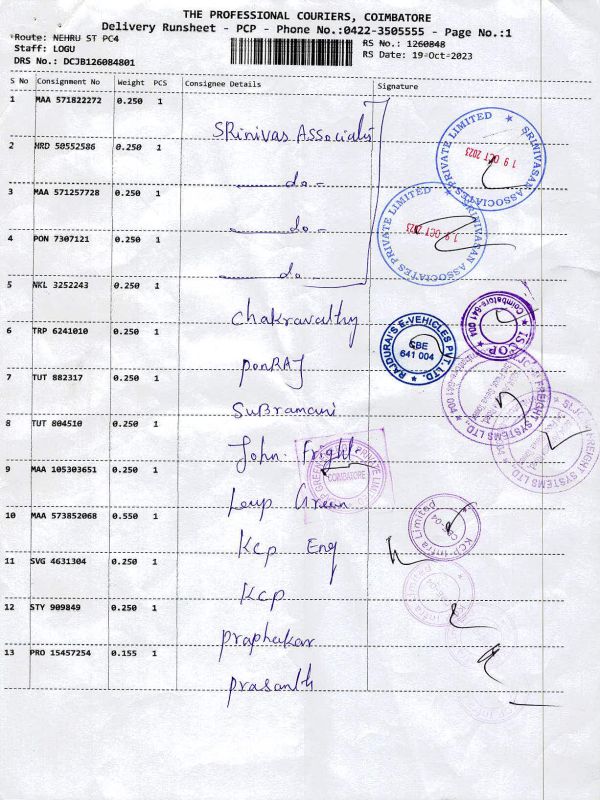 THE PROFESSIONAL COURIERS, COIMBATORE
Delivery Runsheet - PCP - Phone No.:0422-3505555 - Page No.:1
Route: NEHRU ST PC4
RS No.: 1260848
Staff: LOGU
RS Date: 19-Oct-2023
DRS No.: DCJB126084801
S No Consignment No Weight PCS Consignee Details Signature
1 MAA 571822272 0.250 1 SRinivas Associates
2 HRD 50552586 0.250 1 do -
3 MAA 571257728 0.250 1 do -
4 PON 7307121 0.250 1 do -
5 NKL 3252243 0.250 1 Chakravathy
6 TRP 6241010 0.250 1 ponRAJ
7 TUT 882317 0.250 1 SuBramani
8 TUT 804510 0.250 1 John
9 MAA 105303651 0.250 1 Green
10 MAA 573852068 0.550 1 Kcp Eng
11 SVG 4631304 0.250 1 Kcp
12 STY 909849 0.250 1 praphakar
13 PRO 15457254 0.155 1 prasanth
SRINIVASAN ASSOCIATES PRIVATE LIMITED
19 OCT 2023
SRINIVASAN ASSOCIATES PRIVATE LIMITED
19 OCT 2023
Coimbatore-641 004
RAJDURAI'S E-VEHICLES PVT. LTD.
CBE
641 004
FREIGHT SYSTEMS LTD.
FREIGHT SYSTEMS LTD.
COIMBATORE
KCP Infra Limited
CBE-04